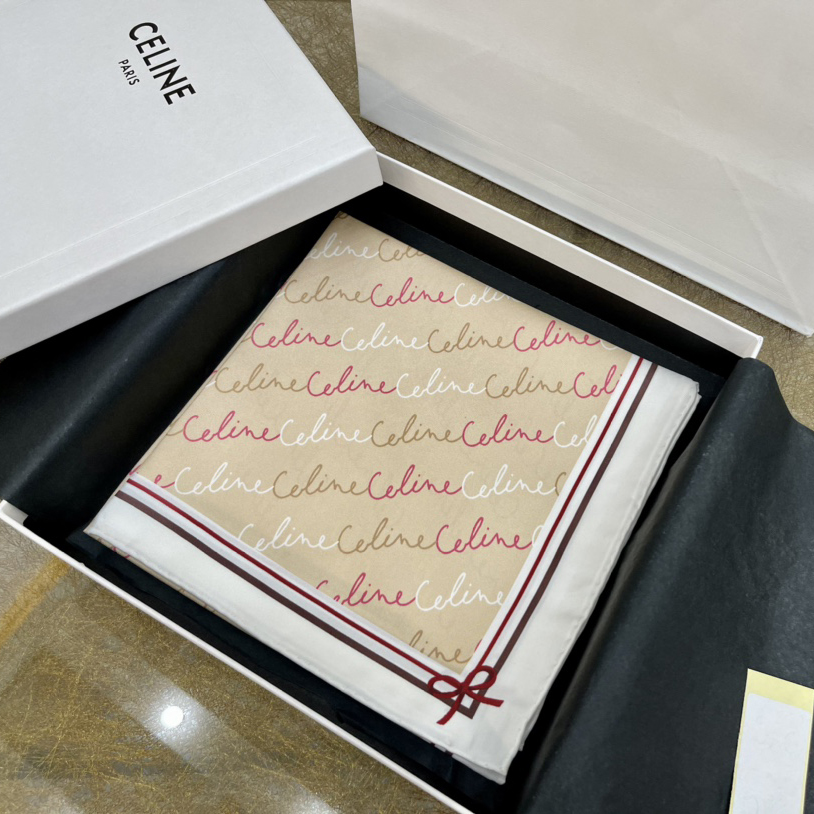 CELINE
PARIS
Celine Celi
Celine Celine Celin
Celine Celine Celine Celine
Celine Celine Celine Celine Celi
Celine Celine Celine Celine Cel
e Celine Celine Celine Celine
Celine Celine Celine
Celine Celine
line